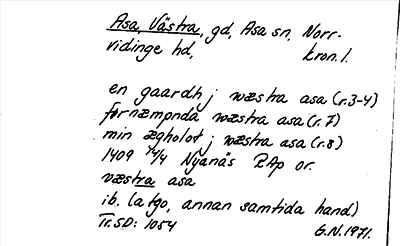 Asa, Västra, gd, Asa sn, Norr-
vidinge hd, kron.l.
en gaardh j wæstra asa (r.3-4)
førnæmpnda wæstra asa (r.7)
min ægholot j wæstra asa (r.8)
1409 14/4 Nyanäs RAp or.
væstra asa
ib. (a tgo, annan samtida hand)
Tr. SD: 1054 G.N. 1971.